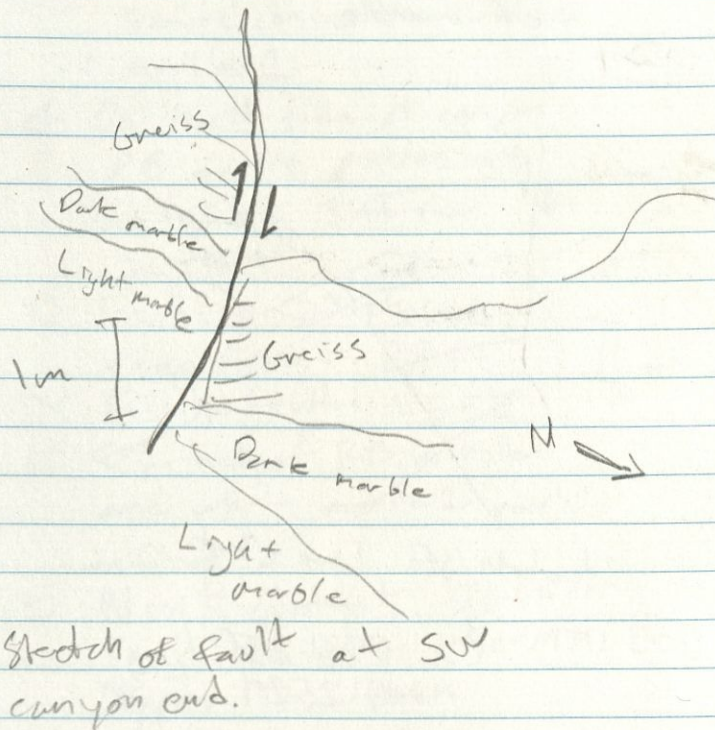 Gneiss
Dark
marble
Light
marble
1m
Gneiss
N
Dark
marble
Light
marble
Sketch of fault at SW
canyon end.